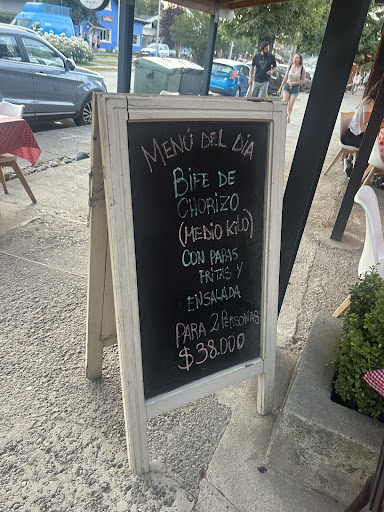 MENÚ DEL DIA
BIFE DE
CHORIZO
(MEDIO KILO)
CON PAPAS
FRITAS Y
ENSALADA
PARA 2 PERSONAS
$38.000